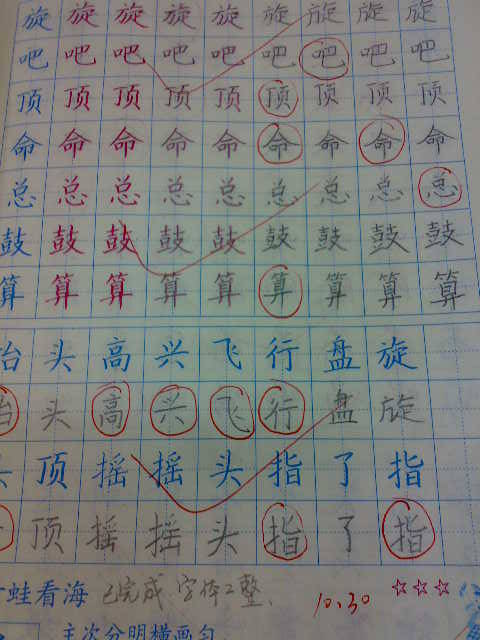 旋旋旋旋旋旋旋旋旋
吧吧吧吧吧吧吧吧吧
顶顶顶顶顶顶顶顶顶
命命命命命命命命命
总总总总总总总总总
鼓鼓鼓鼓鼓鼓鼓鼓鼓
算算算算算算算算算
抬头高兴飞行盘旋
抬头高兴飞行盘旋
头顶摇摇头指了指
顶摇摇头指了指
蛙看海 已完成 字体工整、 10.30
主次分明横画匀